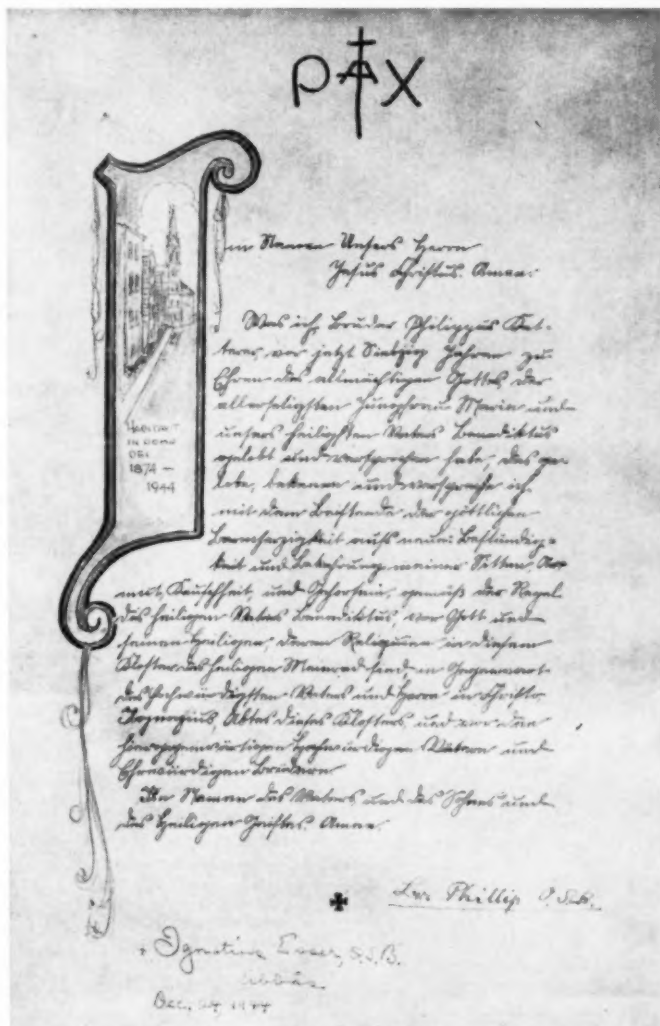 PAX
Im Namen Unsers Herrn
Jesus Christus. Amen.
Was ich, Bruder Philippus Ket-
terer, vor jetzt Siebzig Jahren zu
Ehren des allmächtigen Gottes, der
allerseligsten Jungfrau Maria und
unsers heiligsten Vaters Benediktus
gelobt und versprochen habe, das ge-
lobe, bekenne und verspreche ich
mit dem Beistande der göttlichen
Barmherzigkeit aufs neue: Beständig-
keit und Bekehrung meiner Sitten, Ar-
mut, Keuschheit, und Gehorsam, gemäß der Regel
des heiligen Vaters Benediktus, vor Gott und
seinen Heiligen, deren Reliquien in diesem
Kloster des heiligen Meinrad sind, in Gegenwart
des Hochwürdigsten Vaters und Herrn in Christo,
Ignatius, Abtes dieses Klosters und vor den
hiergegenwärtigen Hochwürdigen Vätern und
Ehrwürdigen Brüdern.
Im Namen des Vaters und des Sohnes und
des Heiligen Geistes. Amen.
IN DOMO
DEI
1874 –
1944
Phillip O.S.B.
+ Ignatius Esser, O.S.B.
Abbas
Dec. 24, 1944